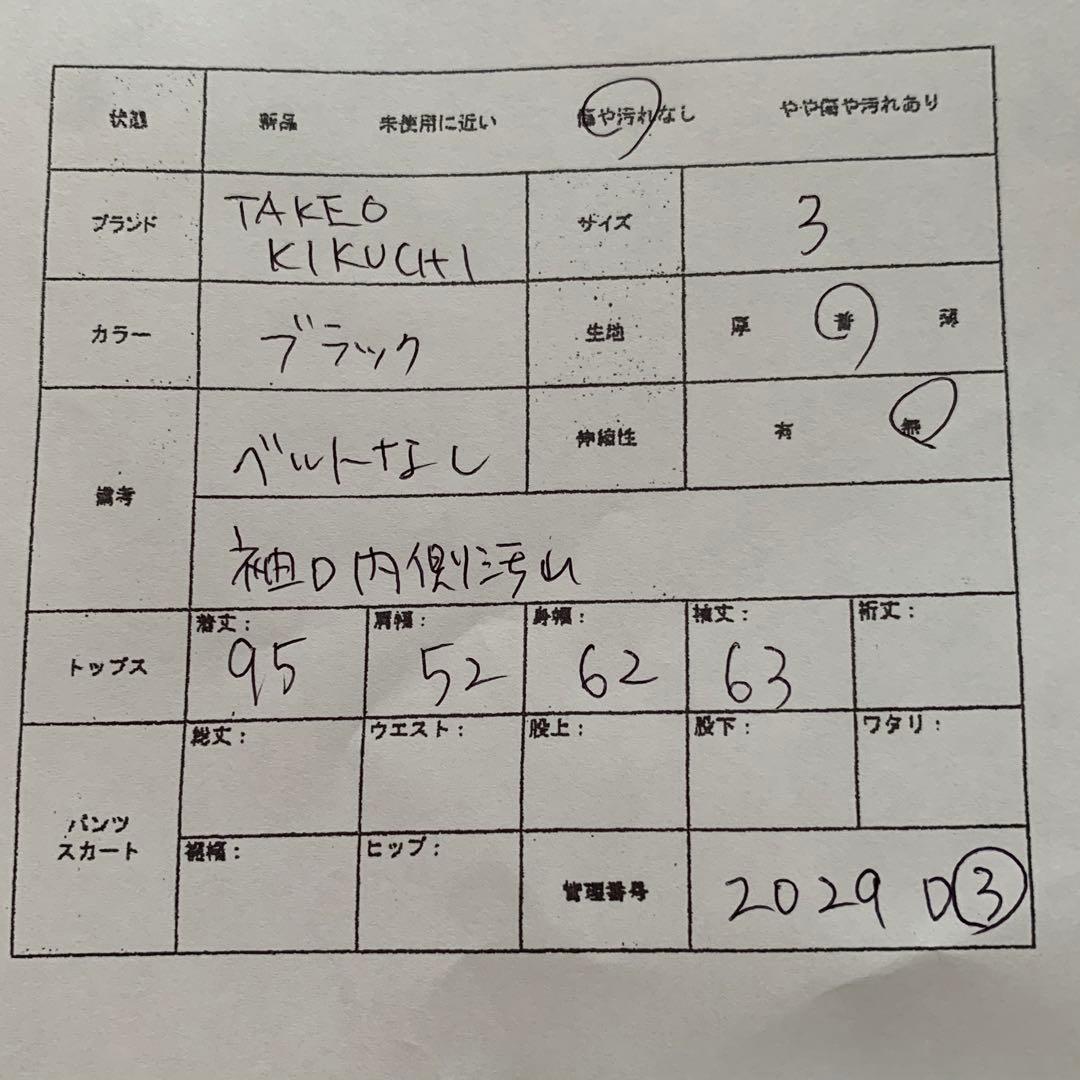 状態 新品 未使用に近い 傷や汚れなし やや傷や汚れあり
ブランド TAKEO KIKUCHI サイズ 3
カラー ブラック 生地 厚 普 薄
備考 ベルトなし 伸縮性 有 無
袖口内側汚れ
トップス 着丈: 95 肩幅: 52 身幅: 62 袖丈: 63 裄丈:
パンツ スカート 総丈: ウエスト: 股上: 股下: ワタリ:
裾幅: ヒップ: 管理番号 2029 D③